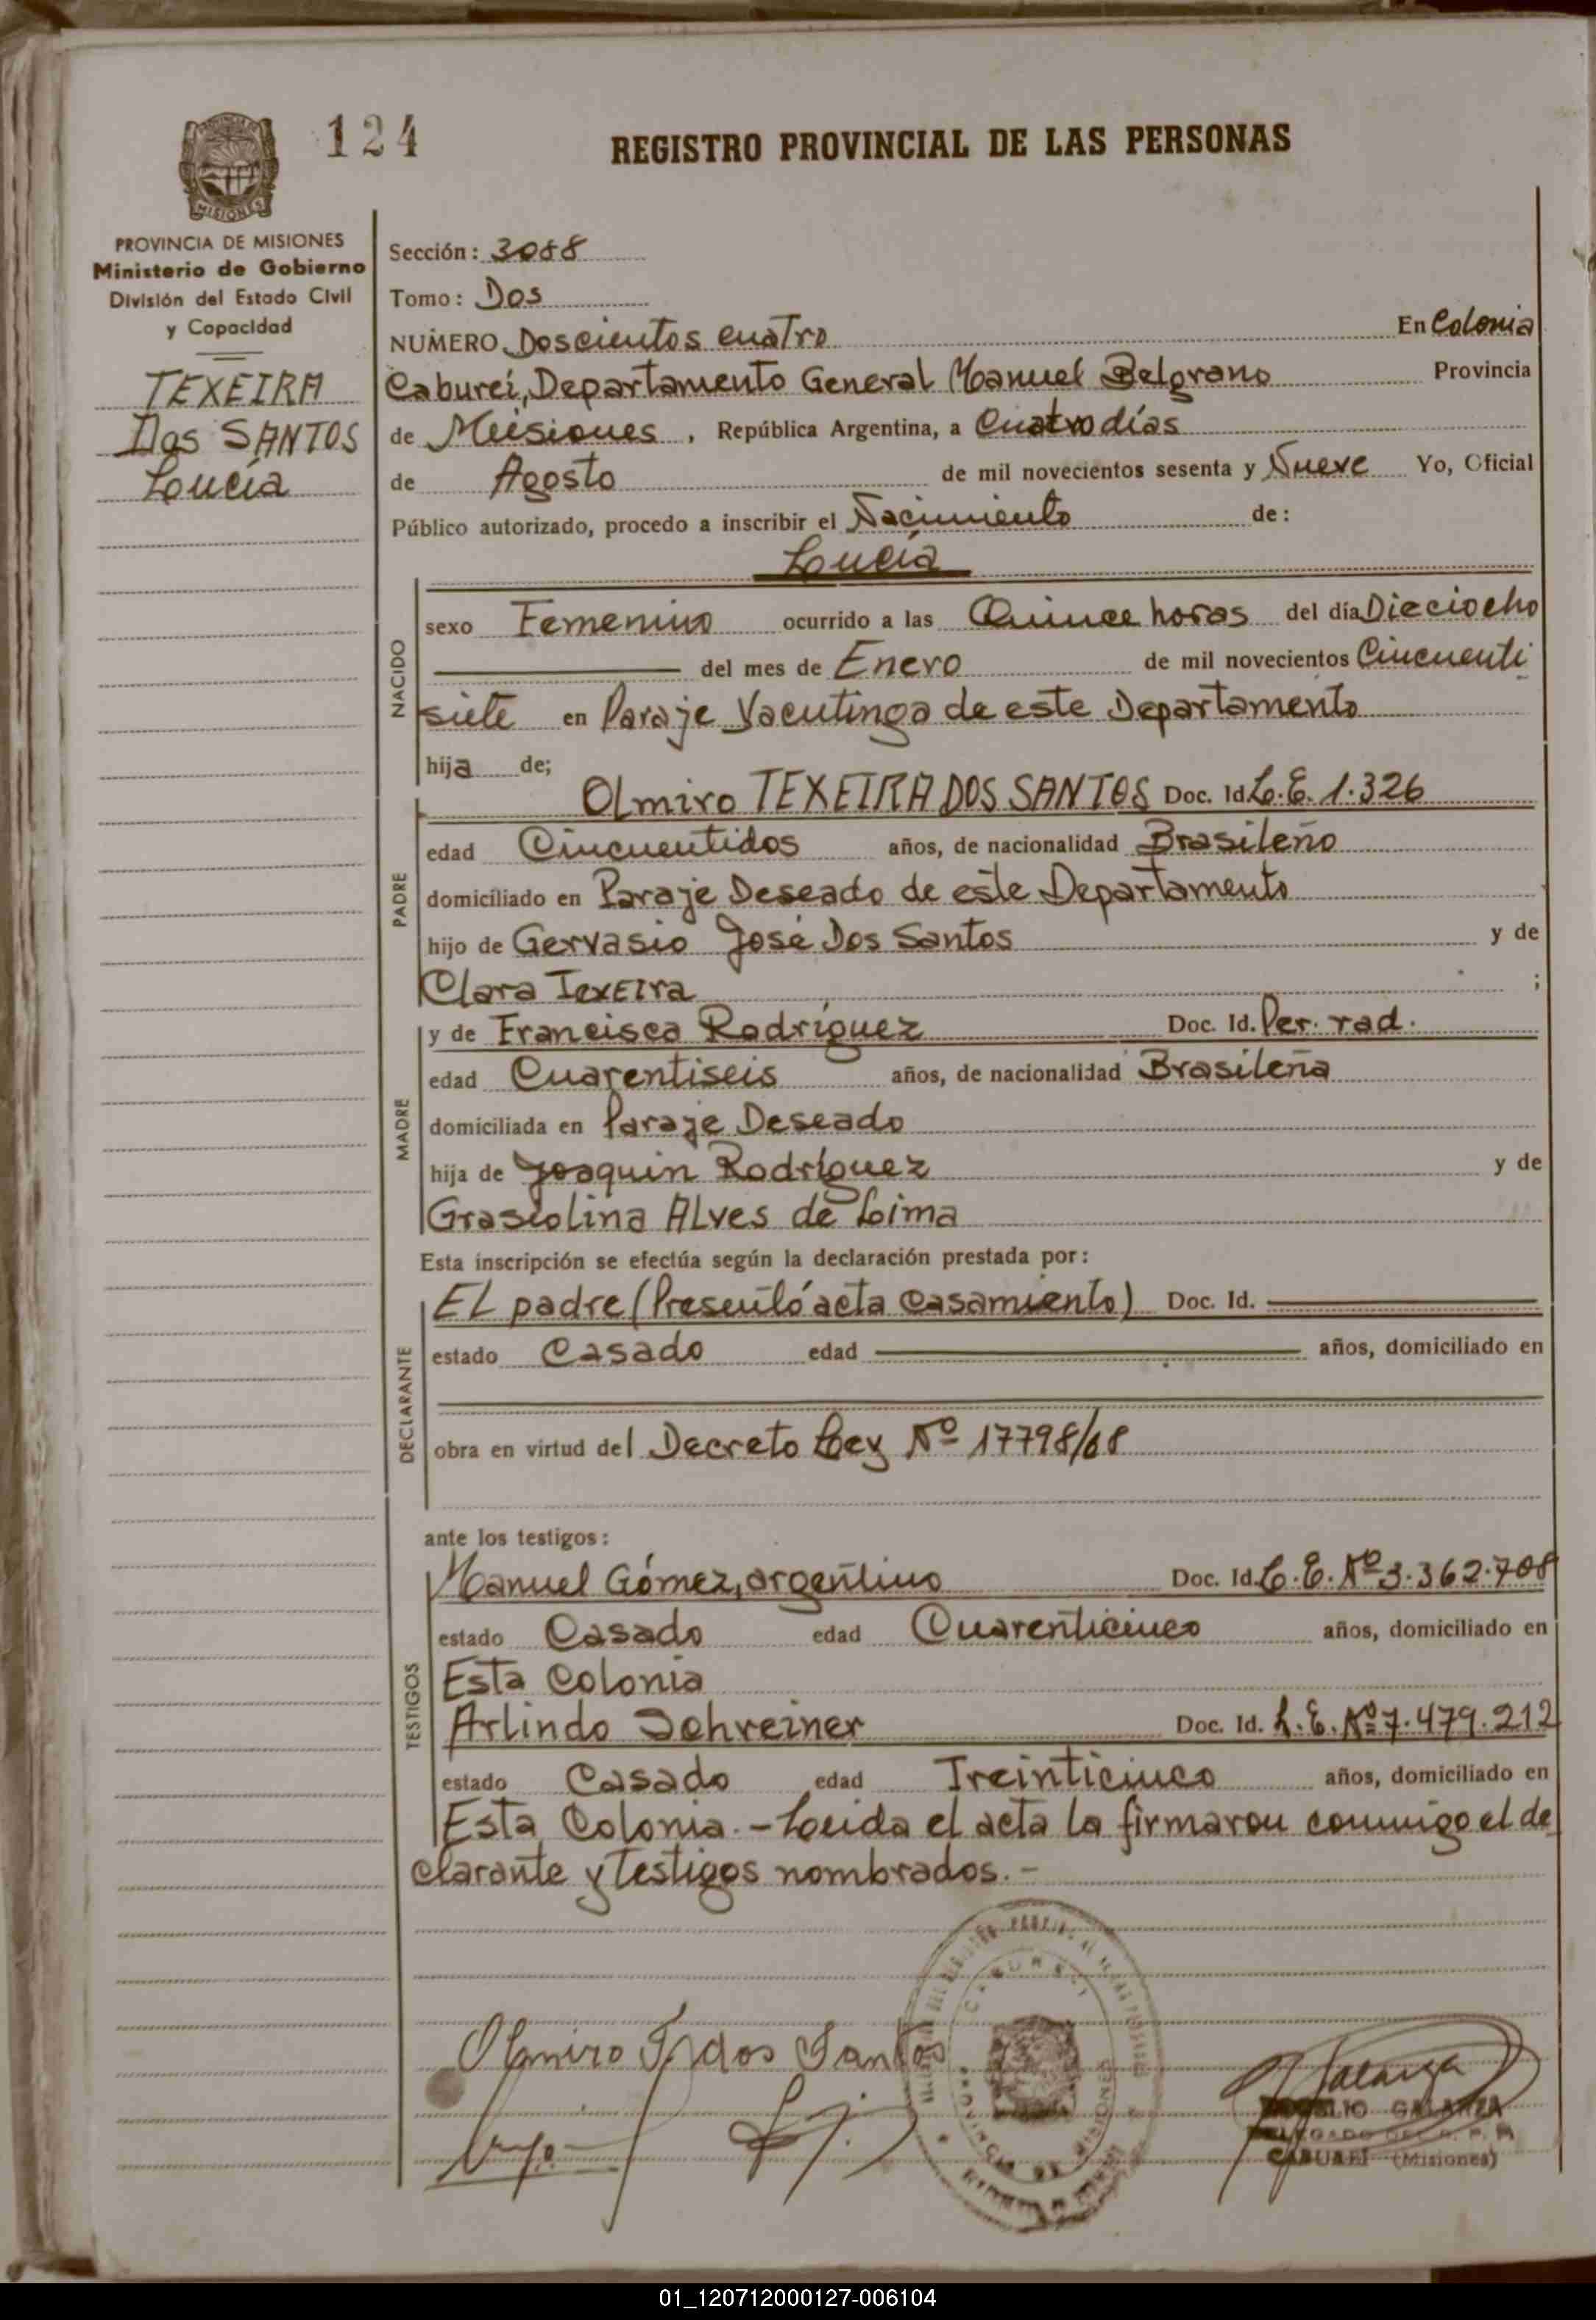 124
REGISTRO PROVINCIAL DE LAS PERSONAS
MISIONES
PROVINCIA DE MISIONES
Ministerio de Gobierno
División del Estado Civil
y Capacidad
TEXEIRA
Dos SANTOS
Lucía
Sección: 3088
Tomo: Dos
NUMERO Doscientos cuatro En Colonia
Cabureí, Departamento General Manuel Belgrano Provincia
de Misiones, República Argentina, a Cuatro días
de Agosto de mil novecientos sesenta y Nueve Yo, Oficial
Público autorizado, procedo a inscribir el Nacimiento de:
Lucía
NACIDO
sexo Femenino ocurrido a las Quince horas del día Dieciocho
del mes de Enero de mil novecientos Cincuenti
siete en Paraje Yacutinga de este Departamento
hija de;
PADRE
Olmiro TEXEIRA DOS SANTOS Doc. Id L.E. 1.326
edad Cincuentidos años, de nacionalidad Brasileño
domiciliado en Paraje Deseado de este Departamento
hijo de Gervasio José Dos Santos y de
Clara Texeira ;
MADRE
y de Francisca Rodríguez Doc. Id. Per. rad.
edad Cuarentiseis años, de nacionalidad Brasileña
domiciliada en Paraje Deseado
hija de Joaquin Rodríguez y de
Grasiolina Alves de Lima
Esta inscripción se efectúa según la declaración prestada por:
DECLARANTE
El padre (Presentó acta casamiento) Doc. Id.
estado Casado edad años, domiciliado en
obra en virtud del Decreto Ley Nº 17798/68
ante los testigos:
TESTIGOS
Manuel Gómez, argentino Doc. Id. L.E. Nº 3.362.708
estado Casado edad Cuarenticinco años, domiciliado en
Esta Colonia
Arlindo Schreiner Doc. Id. L.E. Nº 7.479.212
estado Casado edad Treinticinco años, domiciliado en
Esta Colonia.- Leída el acta la firmaron conmigo el de
clarante y testigos nombrados.-
Olmiro T. dos Santos
CABUREI
PROVINCIA DE MISIONES
Galarza
ROGELIO GALARZA
DELEGADO DEL R. P. P.
CABUREI (Misiones)
01_120712000127-006104